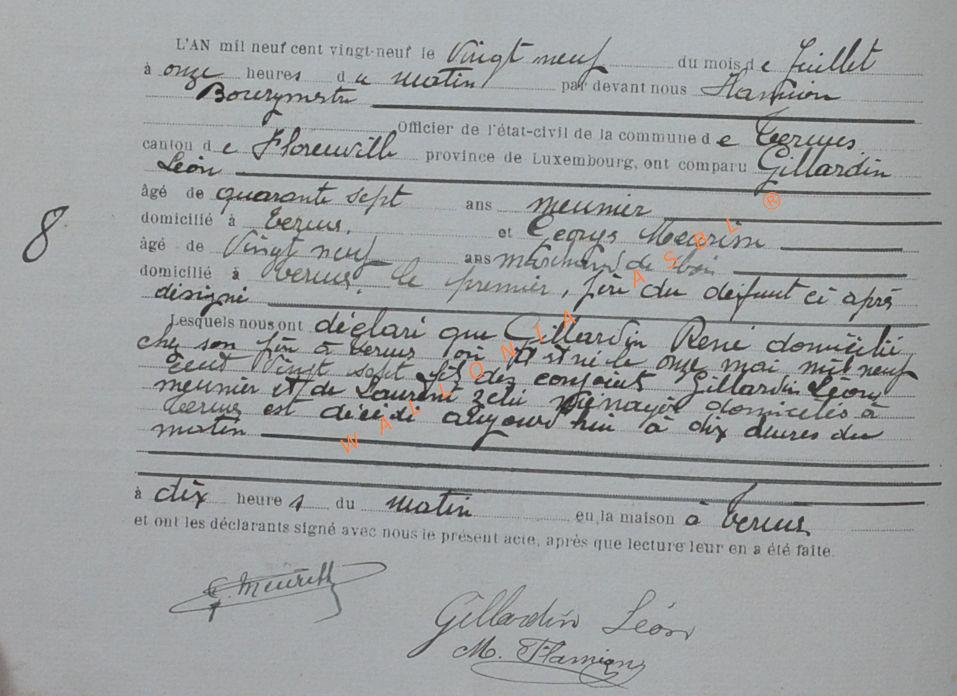 L'AN mil neuf cent vingt-neuf le Vingt neuf du mois de Juillet
à onze heures du matin par devant nous Flamion
Bourgmestre
Officier de l'état-civil de la commune de Termes
canton de Florenville province de Luxembourg, ont comparu Gillardin
Léon
âgé de quarante sept ans meunier
domicilié à Termes. et Georges
âgé de Vingt neuf ans marchand de bois
domicilié à Termes. Le premier, père du défunt ci après
désigné
8
Lesquels nous ont déclaré que Gillardin René domicilié
chez son père à Termes où il est né le onze mai mil neuf
cent Vingt sept fils des conjoints Gillardin Léon
meunier et de Laurent Zélie ménagère domiciliés à
Termes est décédé aujourd'hui à dix heures du
matin
à dix heures du matin en la maison à Termes
et ont les déclarants signé avec nous le présent acte, après que lecture leur en a été faite.
Gillardin Léon
M. Flamion
WALLONIA ASBL ®